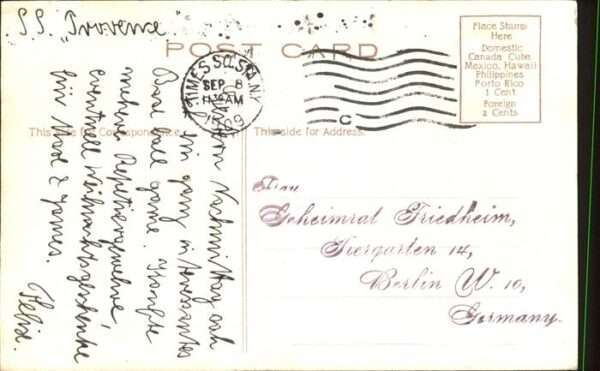 S.S. "Provence"
POST CARD
Place Stamp
Here
Domestic
Canada Cuba
Mexico, Hawaii
Philippines
Porto Rico
1 Cent
Foreign
2 Cents
TIMES SQ. STA. NY
SEP 8
11 AM
1909
C
This side for Correspondence.
This side for Address.
Nachmittag sah
ein ganz interessantes
Base ball game. Kaufte
mehrere Repetiergewehre,
eventuell Weihnachtsgeschenke
für Mad & James.
Felix.
Frau
Geheimrat Friedheim,
Tiergarten 14,
Berlin W. 10,
Germany.